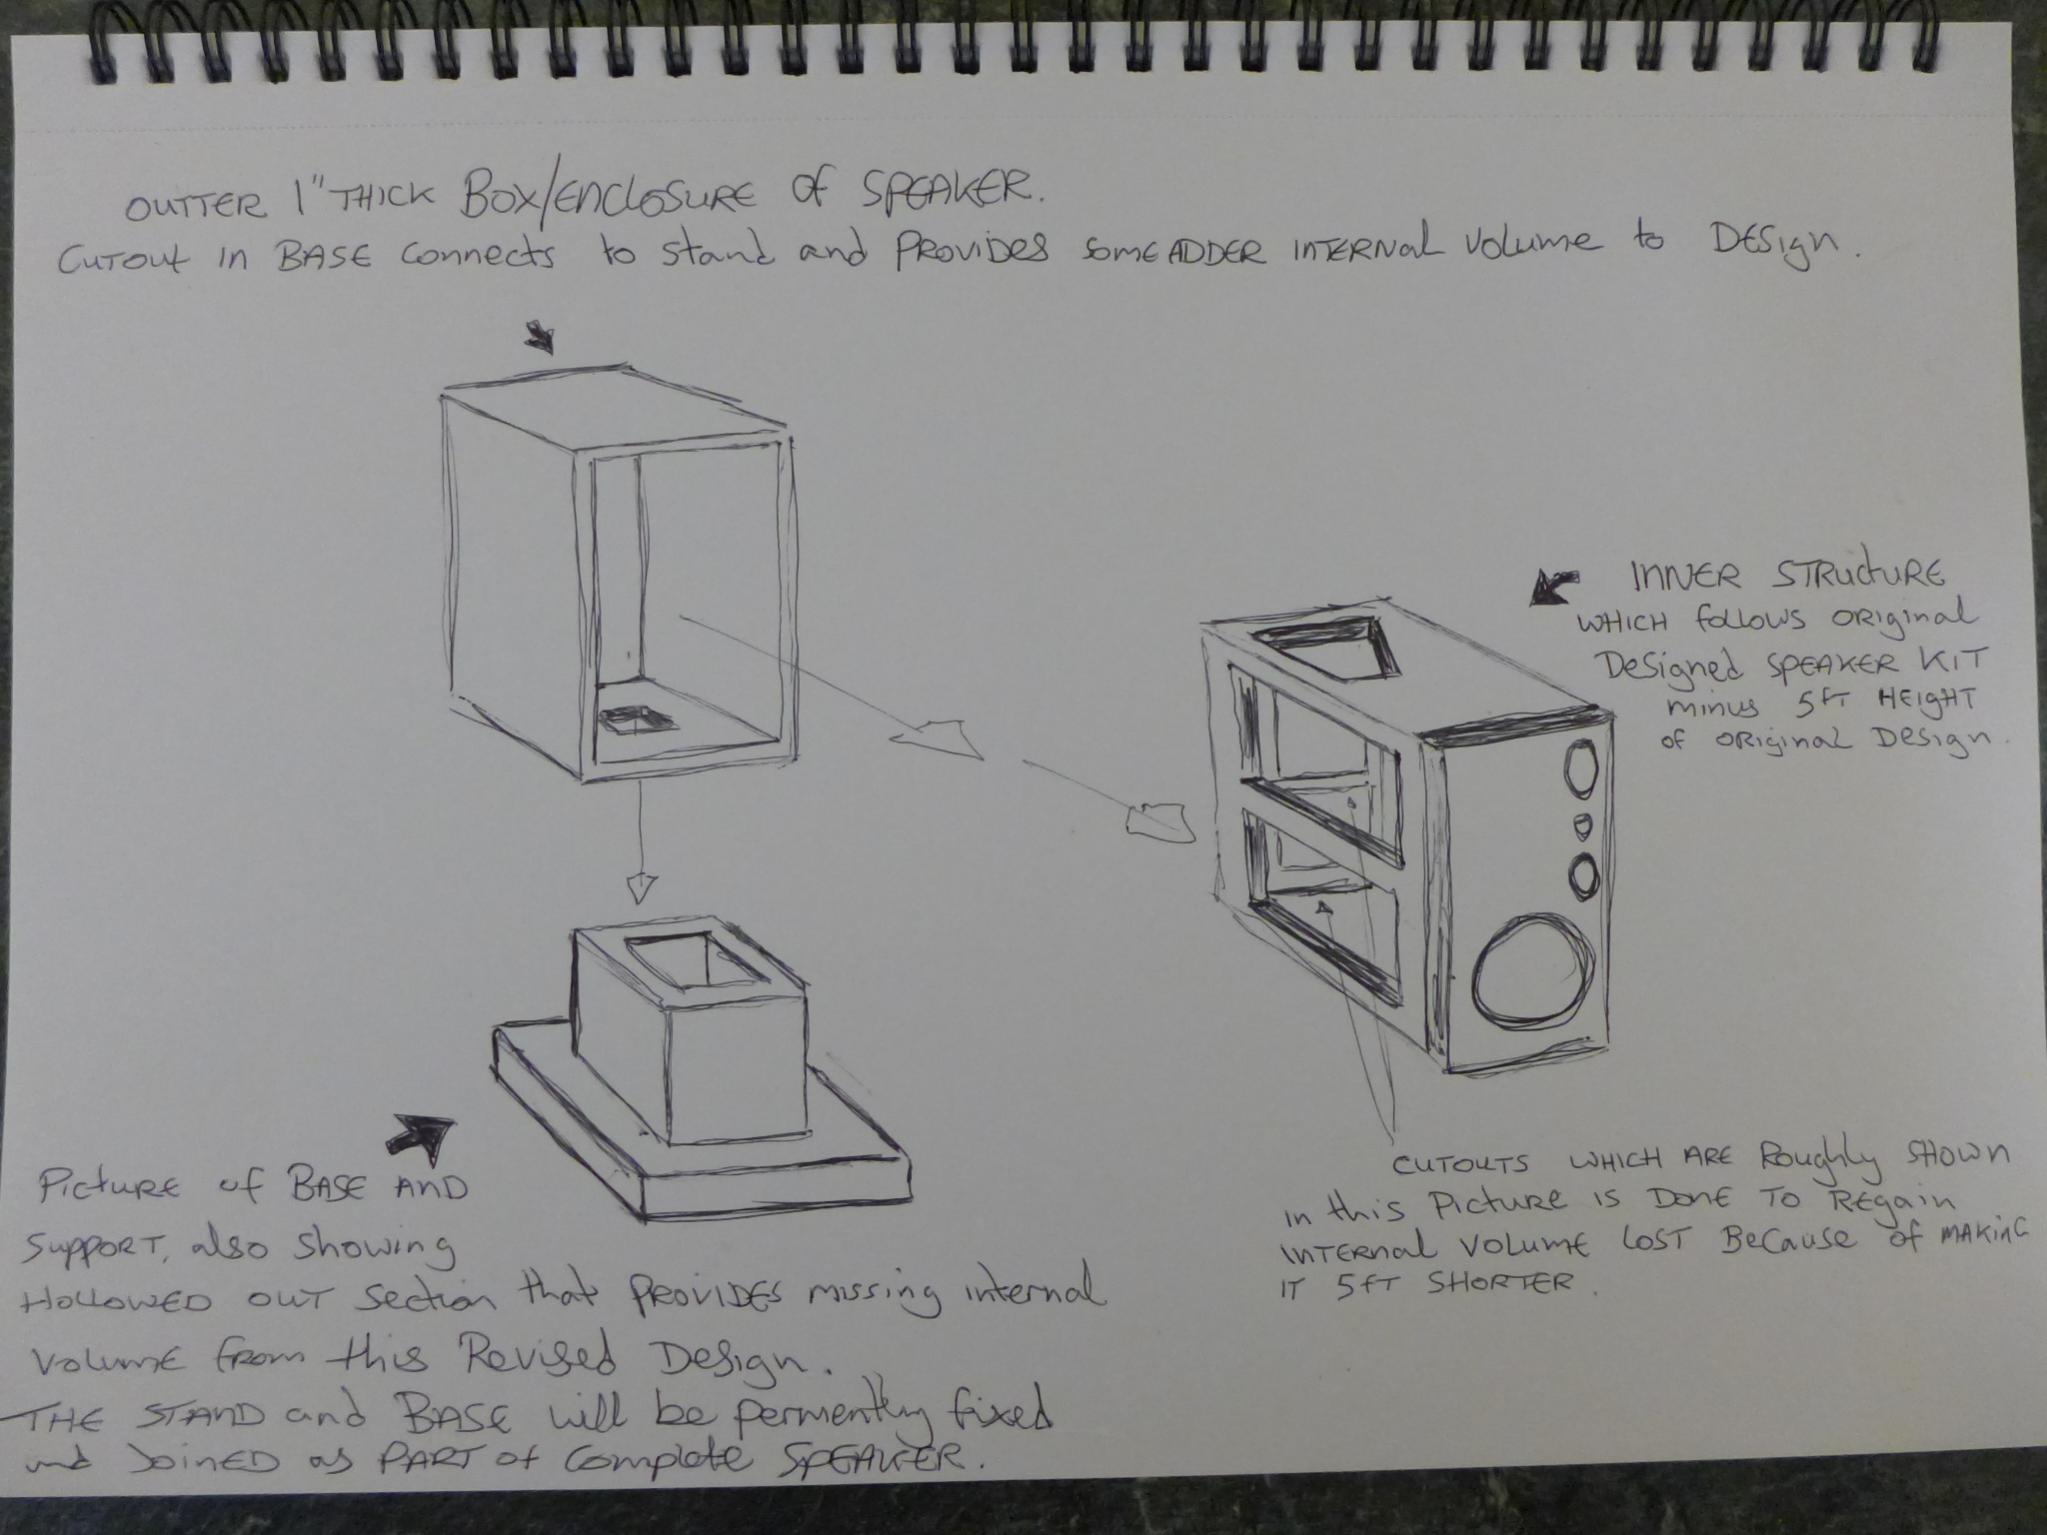 OUTTER 1" THICK BOX/ENCLOSURE OF SPEAKER.
CUTOUT IN BASE CONNECTS to stand and PROVIDES SOME ADDER INTERNAL VOLUME to DESIGN.
INNER STRUCTURE
WHICH FOLLOWS ORIGINAL
DESIGNED SPEAKER KIT
MINUS 5FT HEIGHT
OF ORIGINAL DESIGN.
CUTOUTS WHICH ARE ROUGHLY SHOWN
IN this PICTURE IS DONE TO REGAIN
INTERNAL VOLUME LOST BECAUSE of MAKING
IT 5FT SHORTER.
PICTURE of BASE AND
SUPPORT, also showing
HOLLOWED OUT section that PROVIDES missing internal
VOLUME from this REVISED DESIGN.
THE STAND and BASE will be permently fixed
and JOINED as PART of Complete SPEAKER.